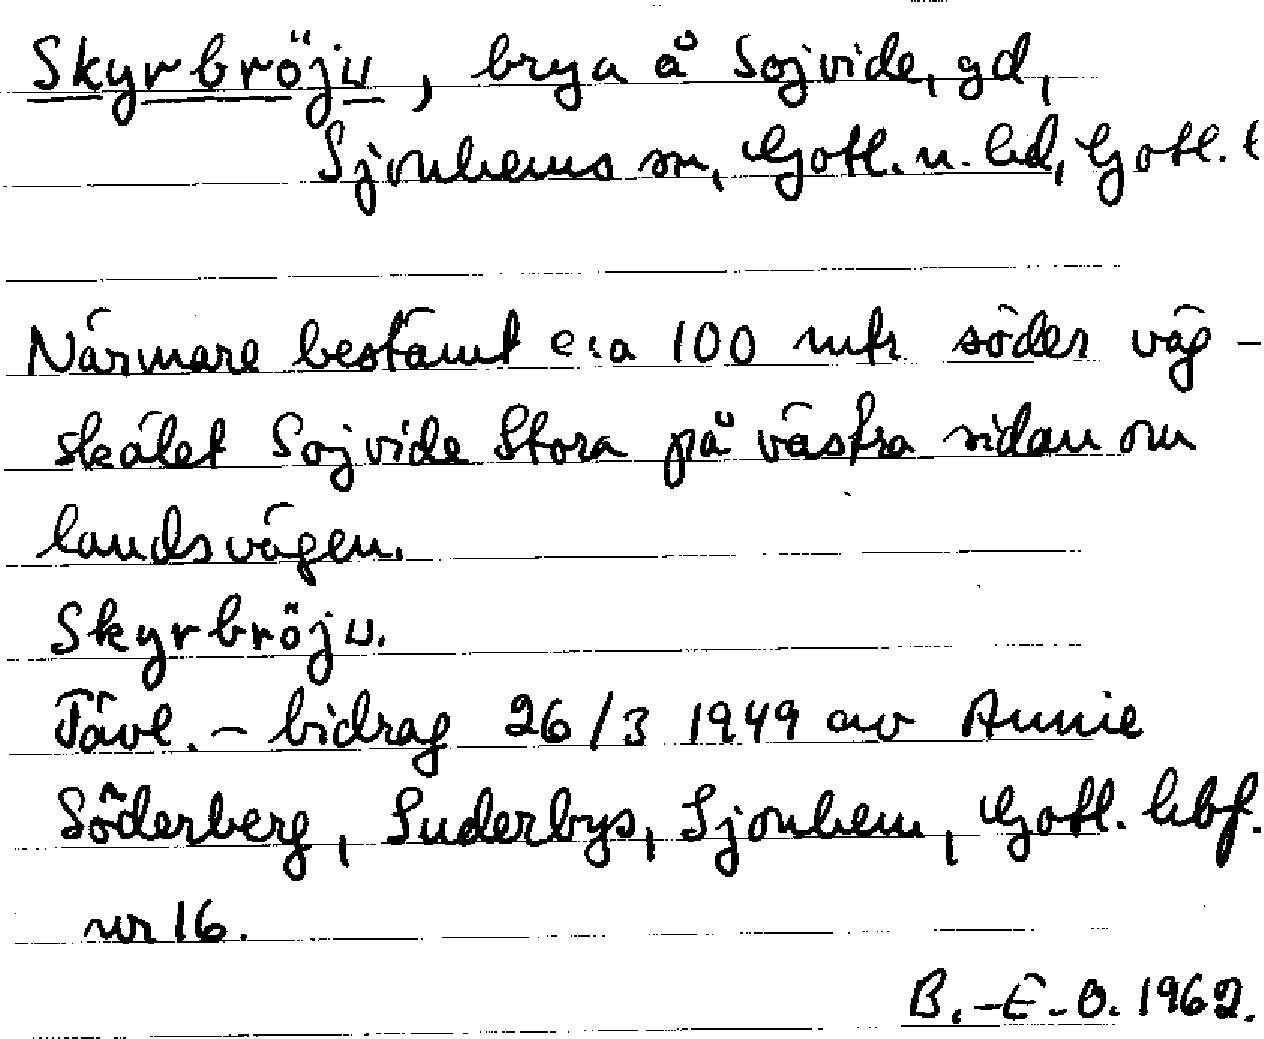 Skyrbröju, brya å Sojvide, gd,
Sjonhems sn, Gotl. n. hd, Gotl. l
Närmare bestämt c:a 100 mtr söder väg-
skälet Sojvide Stora på västra sidan om
landsvägen.
Skyrbröju.
Tävl. - bidrag 26/3 1949 av Annie
Söderberg, Suderbys, Sjonhem, Gotl. hbf.
nr 16.
B.-E-O. 1962.